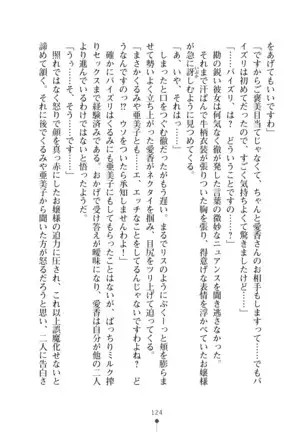 てもいいですわ」
「ですからご褒美目当てじゃなくて、ちゃんと愛香さんのお相手もしますって……でもパ
イズリは初めてだったので、すごく気持ちよくて驚きましたけど……」
「……パイズリ、は？　どういうことですの……？」
勘の鋭い彼女は何気なく徹が発した言葉の微妙なニュアンスを聞き逃さなかった。
それまで汗ばんで牛柄衣装が張りつく胸を張り、得意げな表情を浮かべていたお嬢様
が急に訝しむように見つめてくる。
「あ、いや、それは……」
しまったと口をつぐむ徹だがもう遅い。まるでリスのようにぷくーっと頬を膨らませ
て勢いよく立ち上がった愛香がネクタイを掴み、目尻をツリ上げて迫ってきた。
「まさかくるみや亜美子と……エ、エッチなことをしてるんじゃないですわよね？　ど
うなんですの！　ウソをついても承知しませんわよ！」
確かにパイズリはくるみにも亜美子にもしてもらったことはないが、ばっちりミルク搾
りセックスまで経験済みである。おかげで受け答えが曖昧になり、愛香は自分が二人に
進んでいるわけではないと悟ったようだ。
「うぅ……そ、そう……です……」
照れではなく怒りで顔を真っ赤にしたお嬢様の迫力に圧され、これ以上誤魔化せないと
諦めて頷く。それに後でくるみや亜美子から聞いた方が怒るだろうと思い、二人に告白さ
124